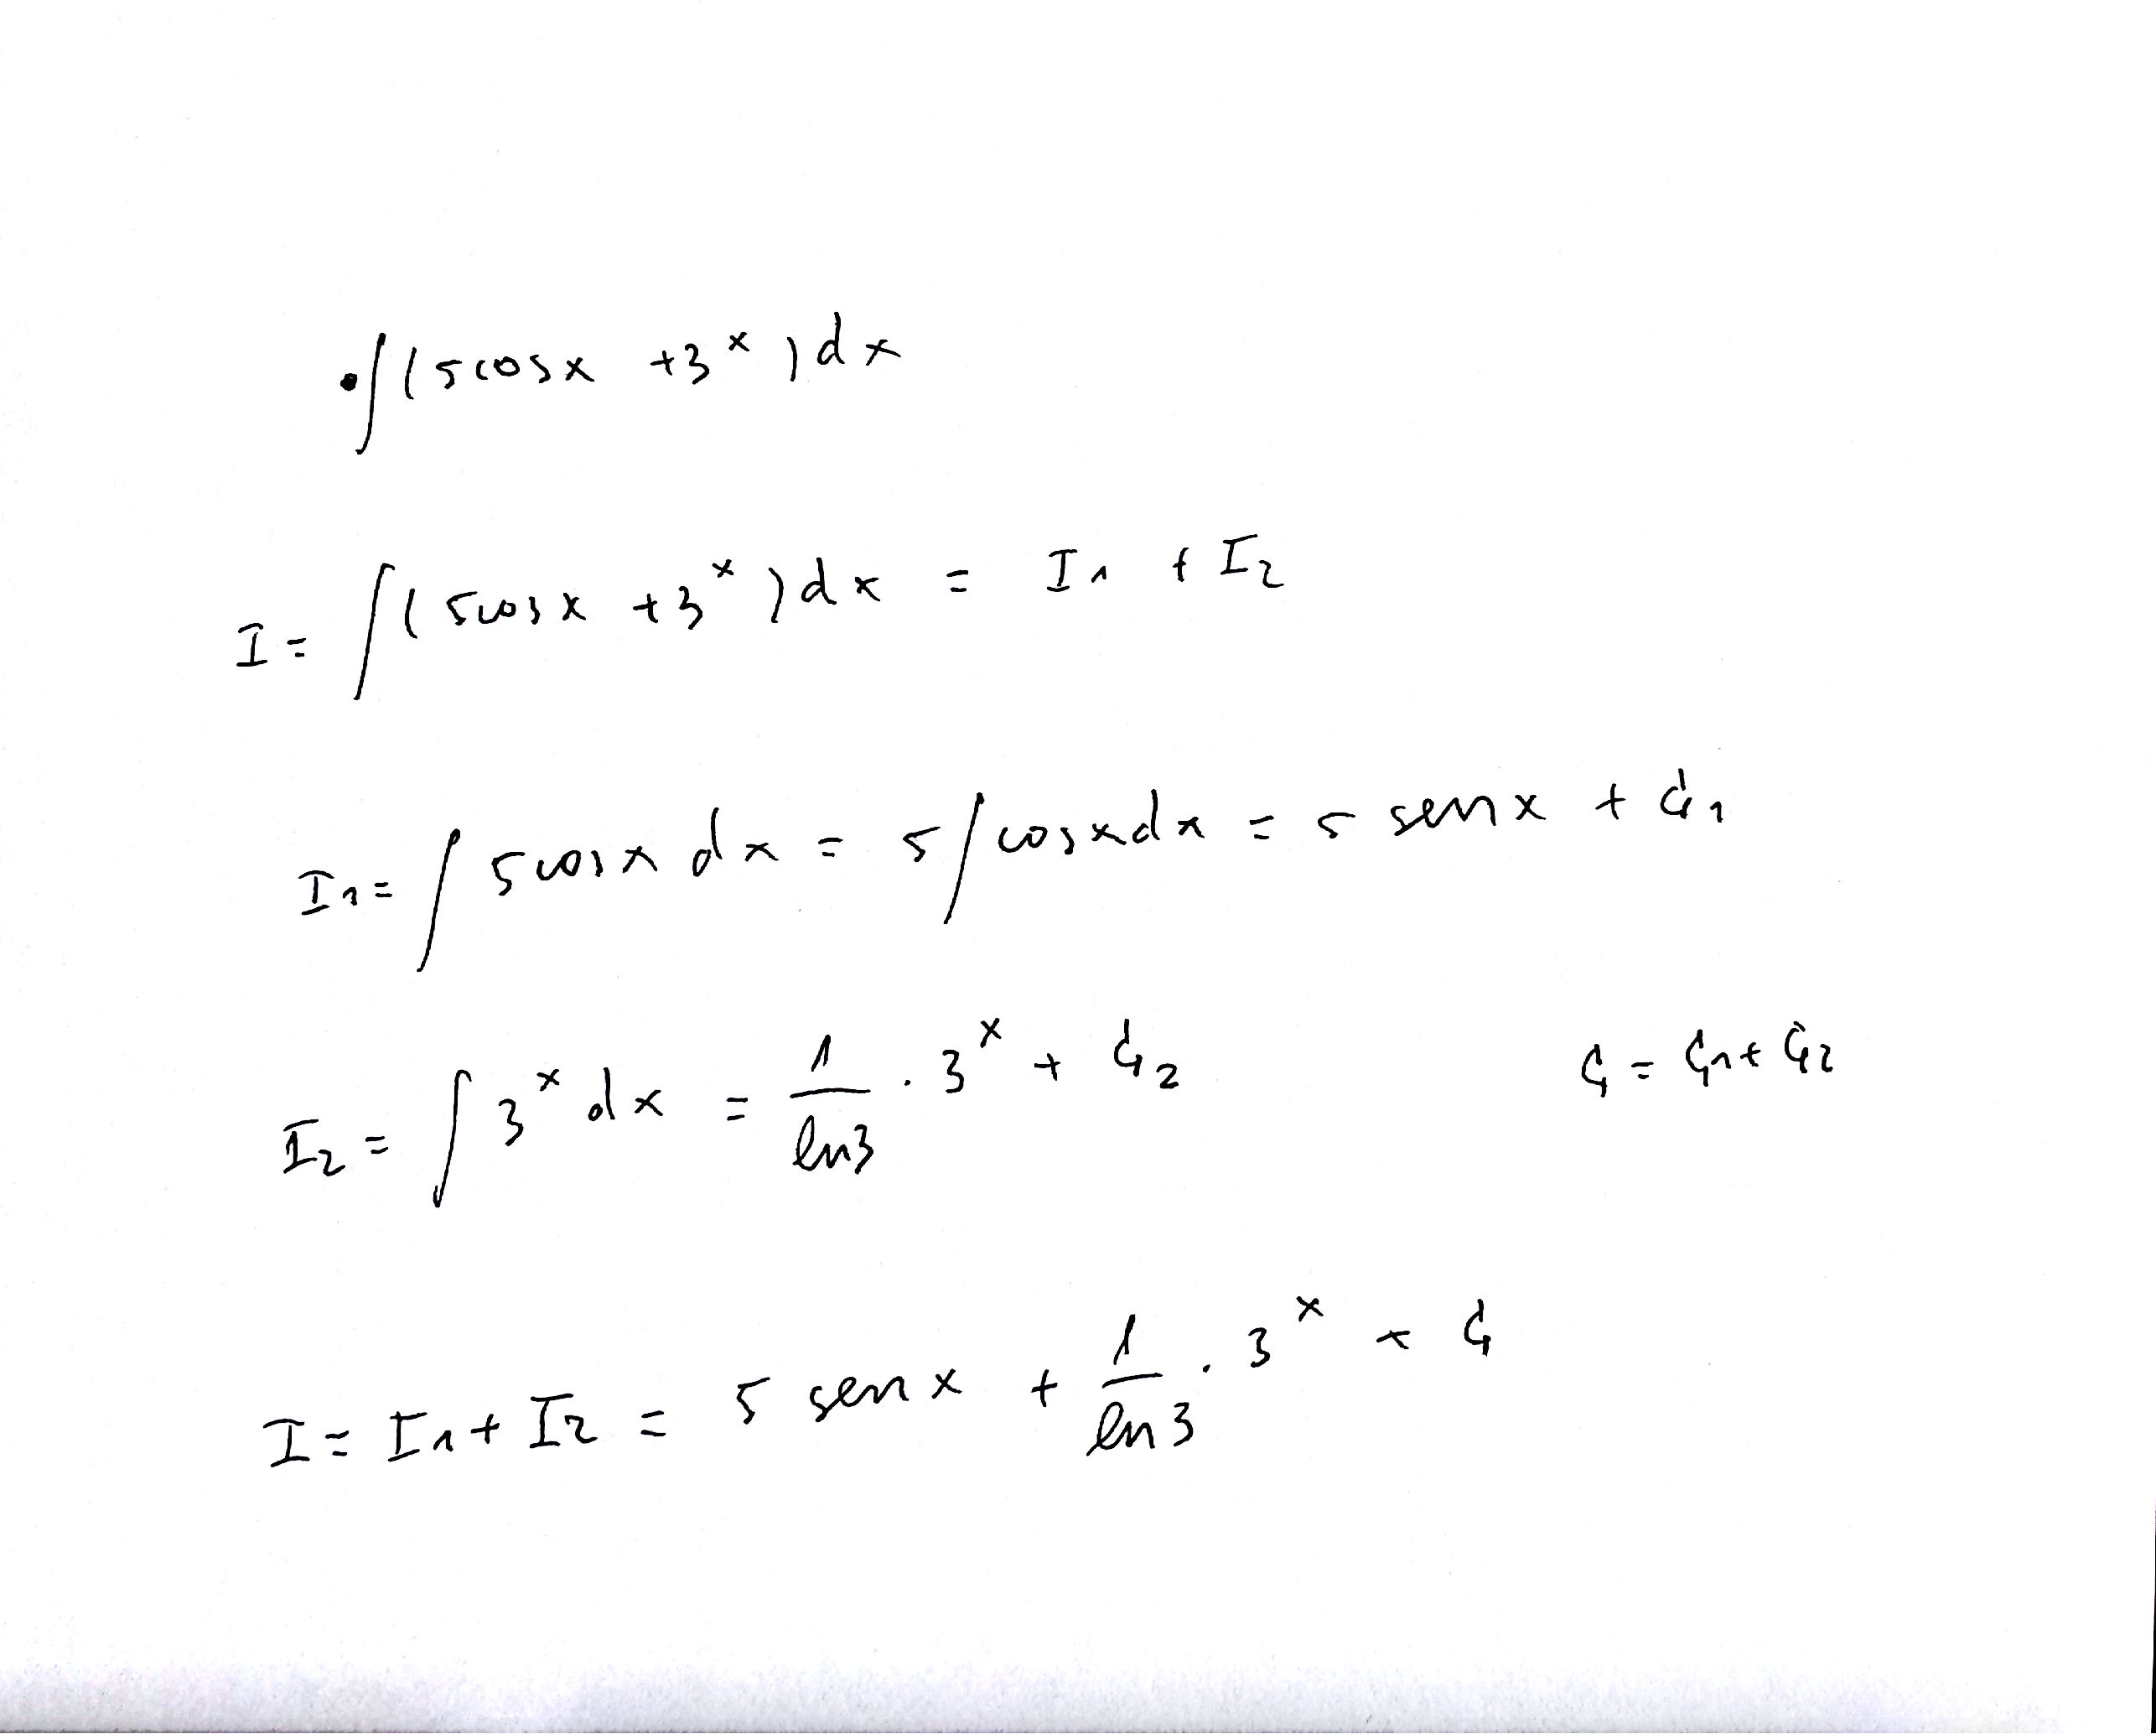 • ∫(5cosx +3^x)dx
I = ∫(5cosx +3^x)dx = I₁ + I₂
I₁ = ∫5cosx dx = 5∫cosxdx = 5 senx + C₁
I₂ = ∫3^x dx = 1/ln3 · 3^x + C₂ C = C₁ + C₂
I = I₁ + I₂ = 5 senx + 1/ln3 · 3^x + C